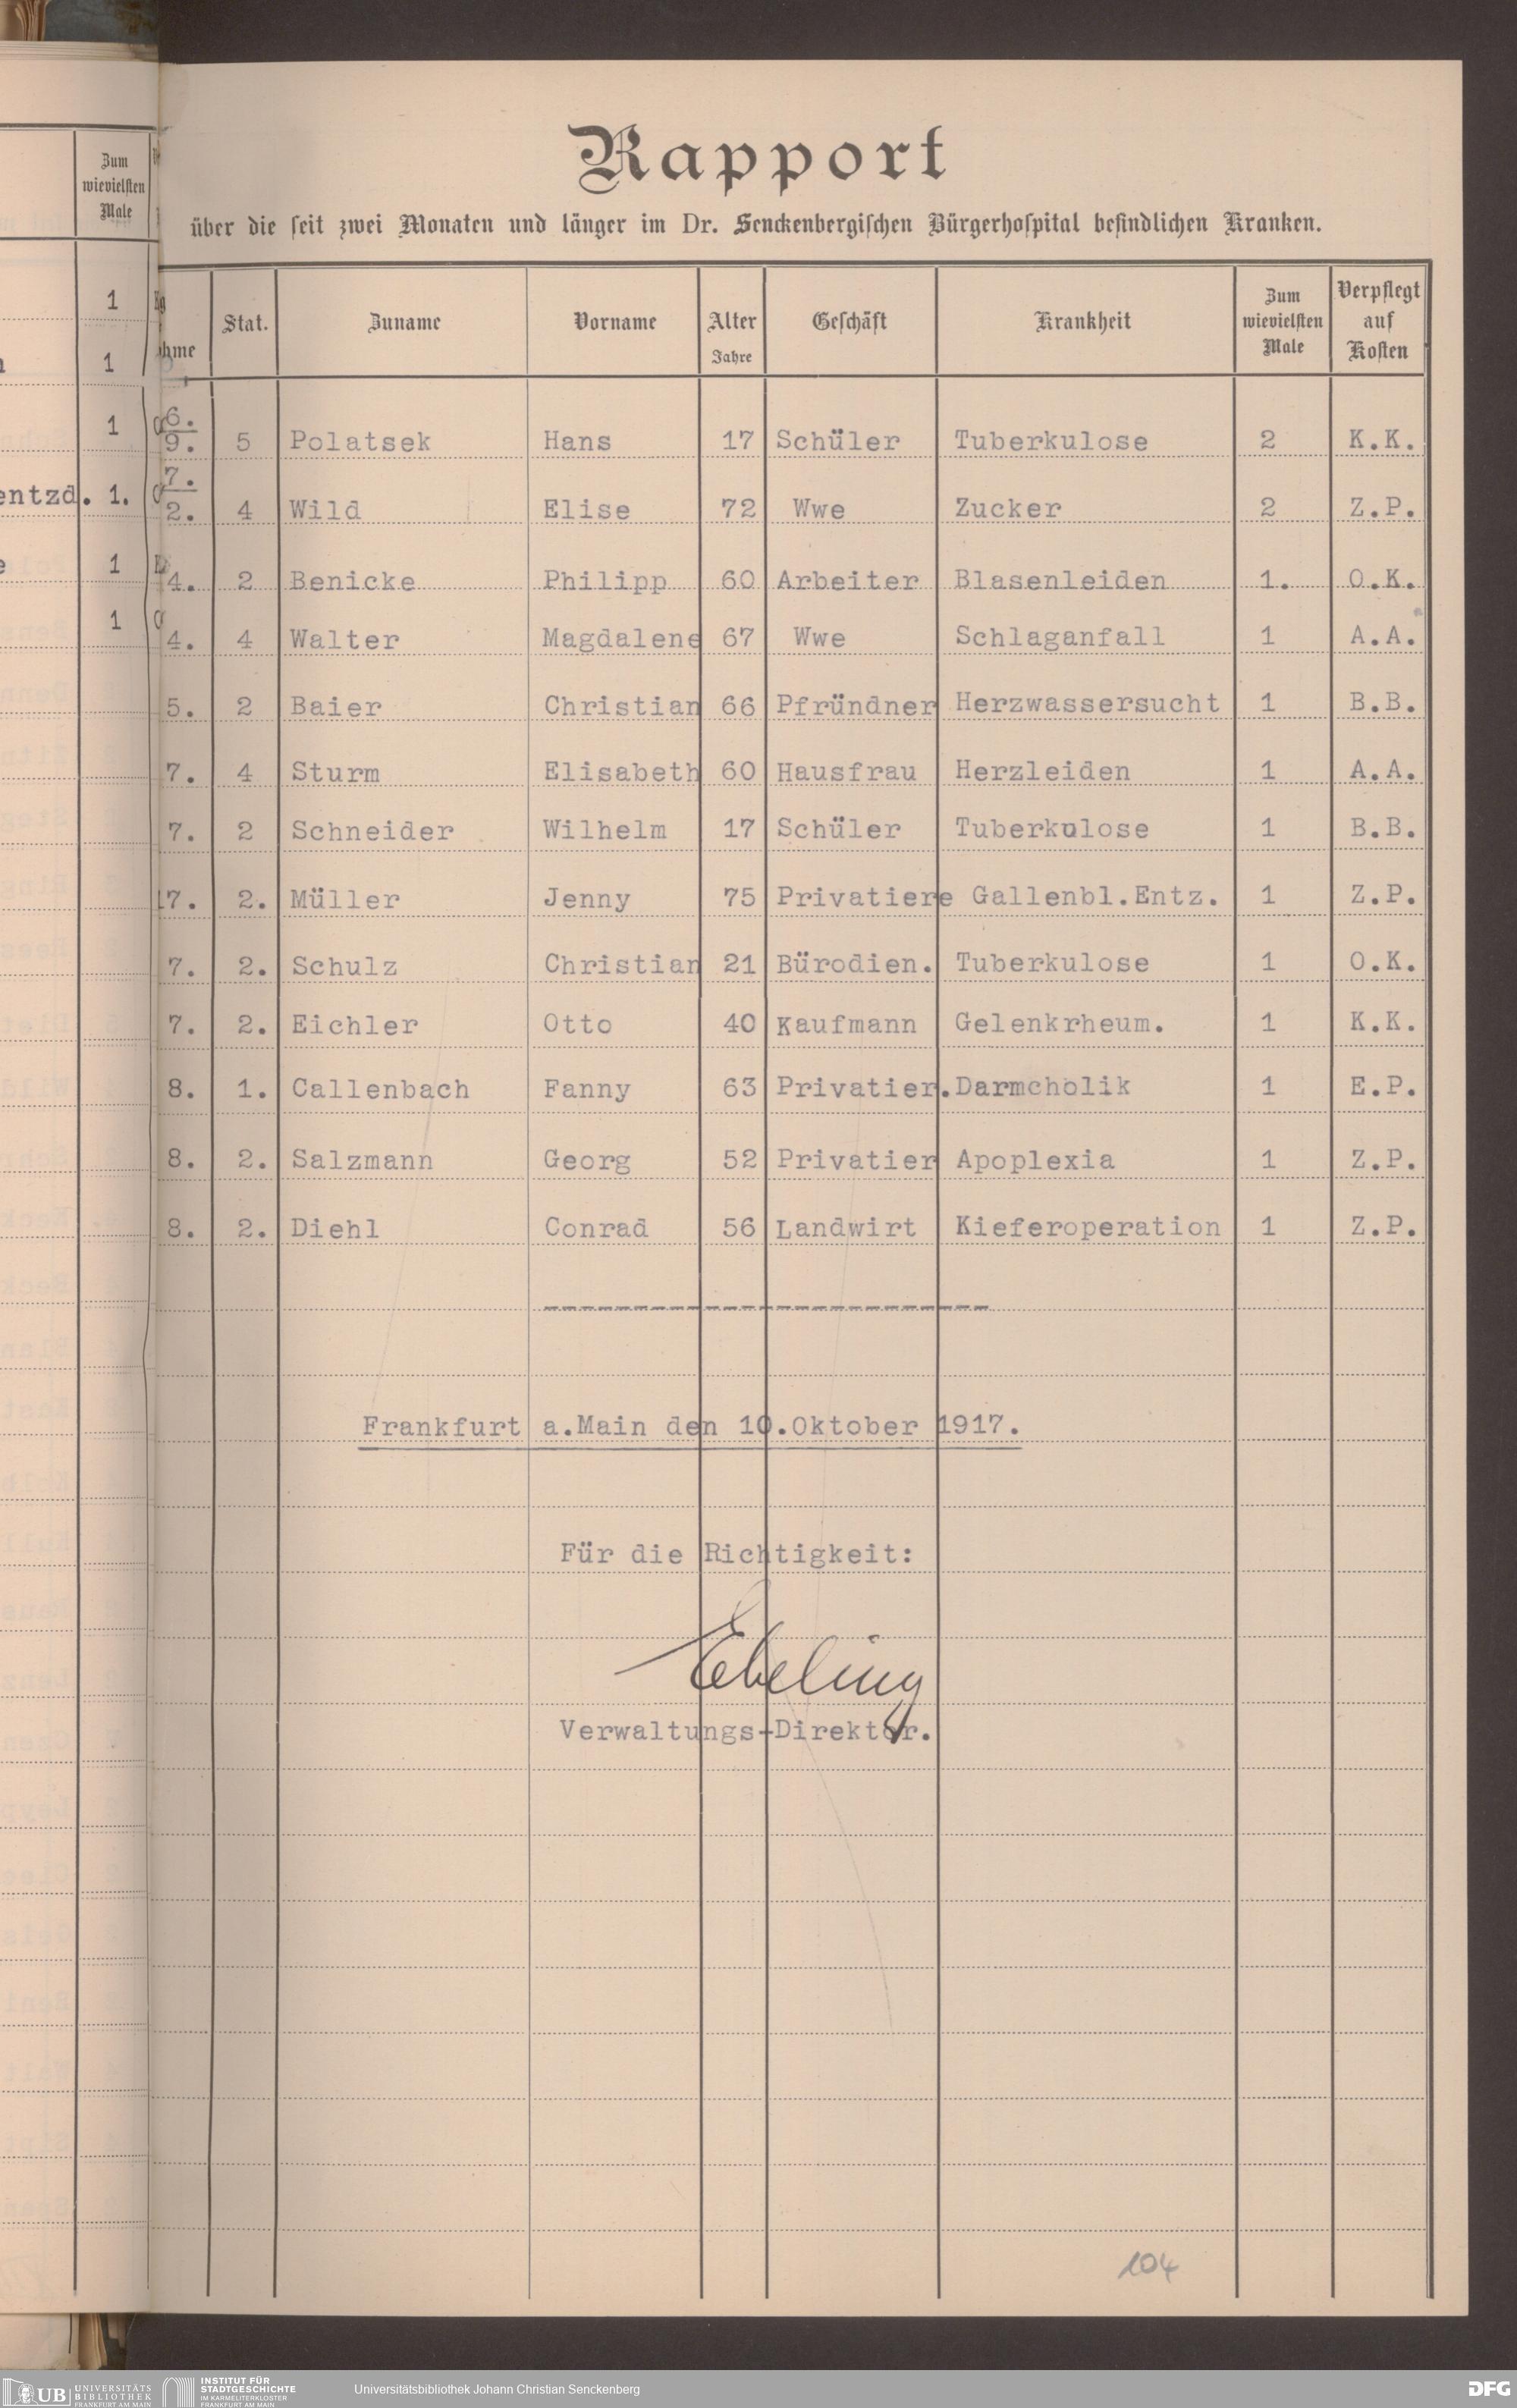 Zum
wievielsten
Male
1
1
1
entzd. 1.
1
1
Rapport
über die seit zwei Monaten und länger im Dr. Senckenbergischen Bürgerhospital befindlichen Kranken.
hme Stat. Zuname Vorname Alter Jahre Geschäft Krankheit Zum wievielsten Male Verpflegt auf Kosten
6. 9. 5 Polatsek Hans 17 Schüler Tuberkulose 2 K.K.
7. 2. 4 Wild Elise 72 Wwe Zucker 2 Z.P.
4. 2 Benicke Philipp 60 Arbeiter Blasenleiden 1. O.K.
4. 4 Walter Magdalene 67 Wwe Schlaganfall 1 A.A.
5. 2 Baier Christian 66 Pfründner Herzwassersucht 1 B.B.
7. 4 Sturm Elisabeth 60 Hausfrau Herzleiden 1 A.A.
7. 2 Schneider Wilhelm 17 Schüler Tuberkulose 1 B.B.
7. 2. Müller Jenny 75 Privatiere Gallenbl.Entz. 1 Z.P.
7. 2. Schulz Christian 21 Bürodien. Tuberkulose 1 O.K.
7. 2. Eichler Otto 40 Kaufmann Gelenkrheum. 1 K.K.
8. 1. Callenbach Fanny 63 Privatier. Darmcholik 1 E.P.
8. 2. Salzmann Georg 52 Privatier Apoplexia 1 Z.P.
8. 2. Diehl Conrad 56 Landwirt Kieferoperation 1 Z.P.
Frankfurt a.Main den 10.Oktober 1917.
Für die Richtigkeit:
Ebeling
Verwaltungs-Direktor.
104
UB UNIVERSITÄTS
BIBLIOTHEK
FRANKFURT AM MAIN
INSTITUT FÜR
STADTGESCHICHTE
IM KARMELITERKLOSTER
FRANKFURT AM MAIN
Universitätsbibliothek Johann Christian Senckenberg
DFG